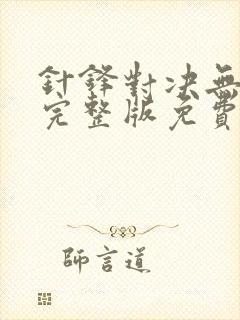 針鋒對决無
完整版免費
師言道